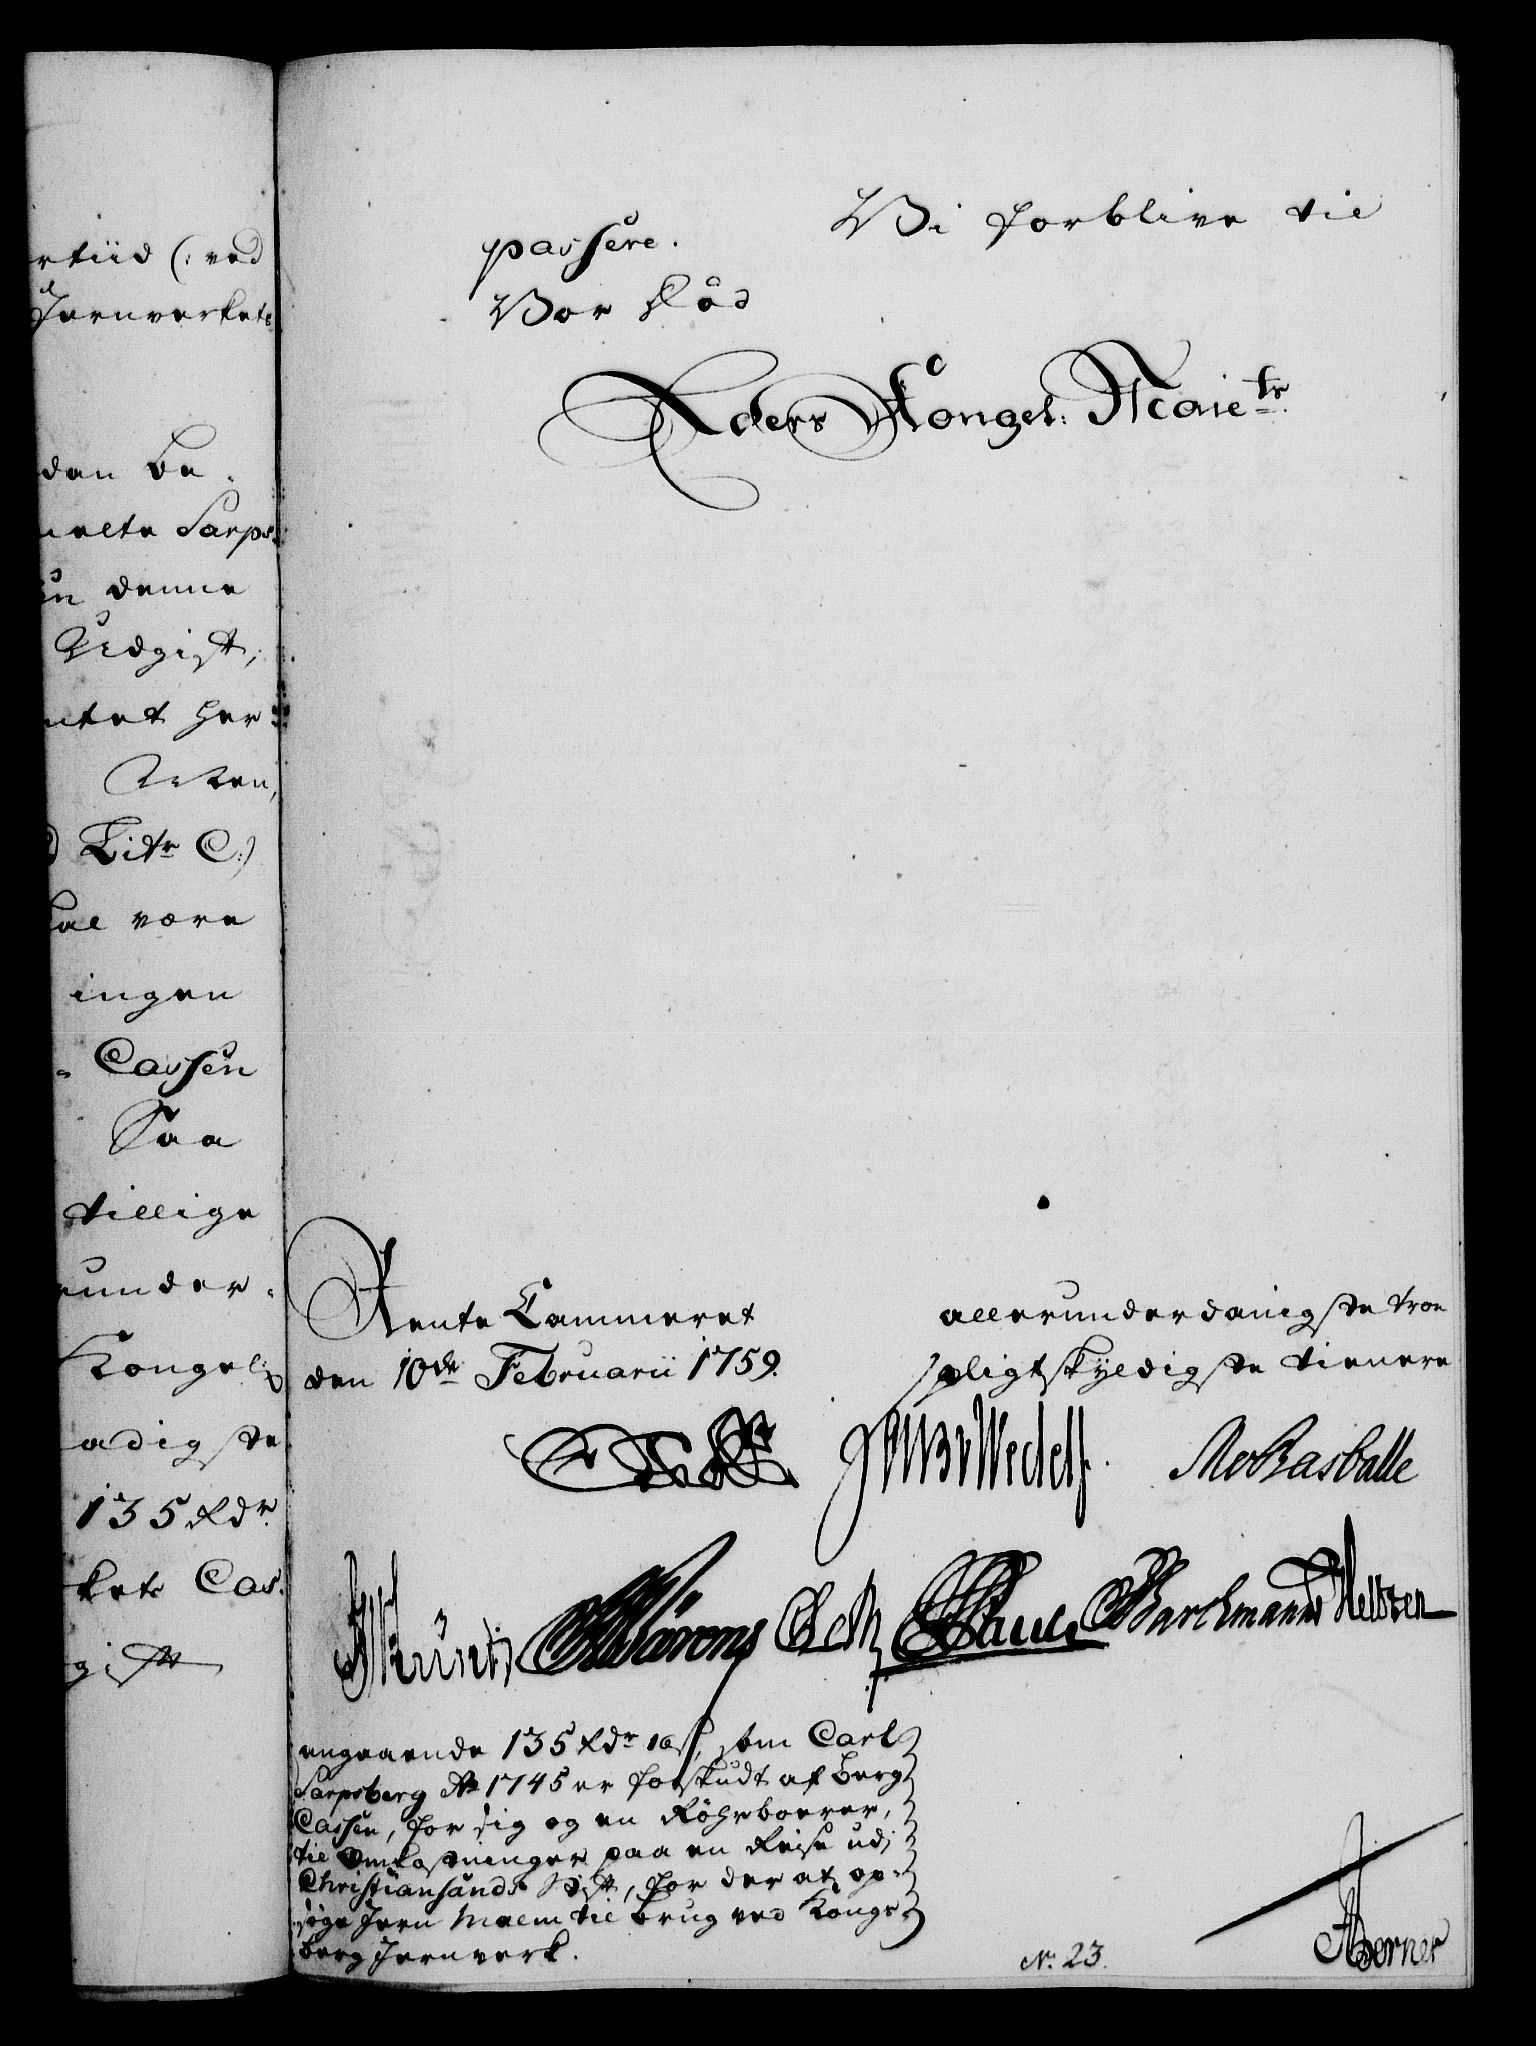 rtiid (: ved
Jernverkets
den be-
melte Sarps-
denne
Udgift;
ntet her-
Litr C:)
kal være
ingen
Cassen
Saa
tillige
runder-
Kongel:
adigste
135 Rdr
kets Cas-
gift
passere. Vi forblive til
Vor Død
Eders Kongel: Maiets
Rente Cammeret
den 10de Februarii 1759.
allerunderdanigste troe
pligtskyldigste tienere
Wedell
Rasballe
Barchmann
angaaende 135 Rdr 16 s, som Carl
Sarpsberg Ao 1745 er forskudt af Berg
Cassen, for sig og en Röhrboerer,
til Omkostninger paa en Reise udi
Christiansands Stift, for der at op-
søge Jern Malm til brug ved Kongs-
berg Jernverk.
No. 23.